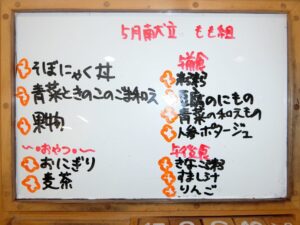 5月献立 もも組
そぼにゃく丼
青菜ときのこのごま和え
果物
〜おやつ〜
おにぎり
麦茶
午前食
豆腐のにもの
青菜の和えもの
人参ポタージュ
午後食
きなこ粥
すまし汁
りんご